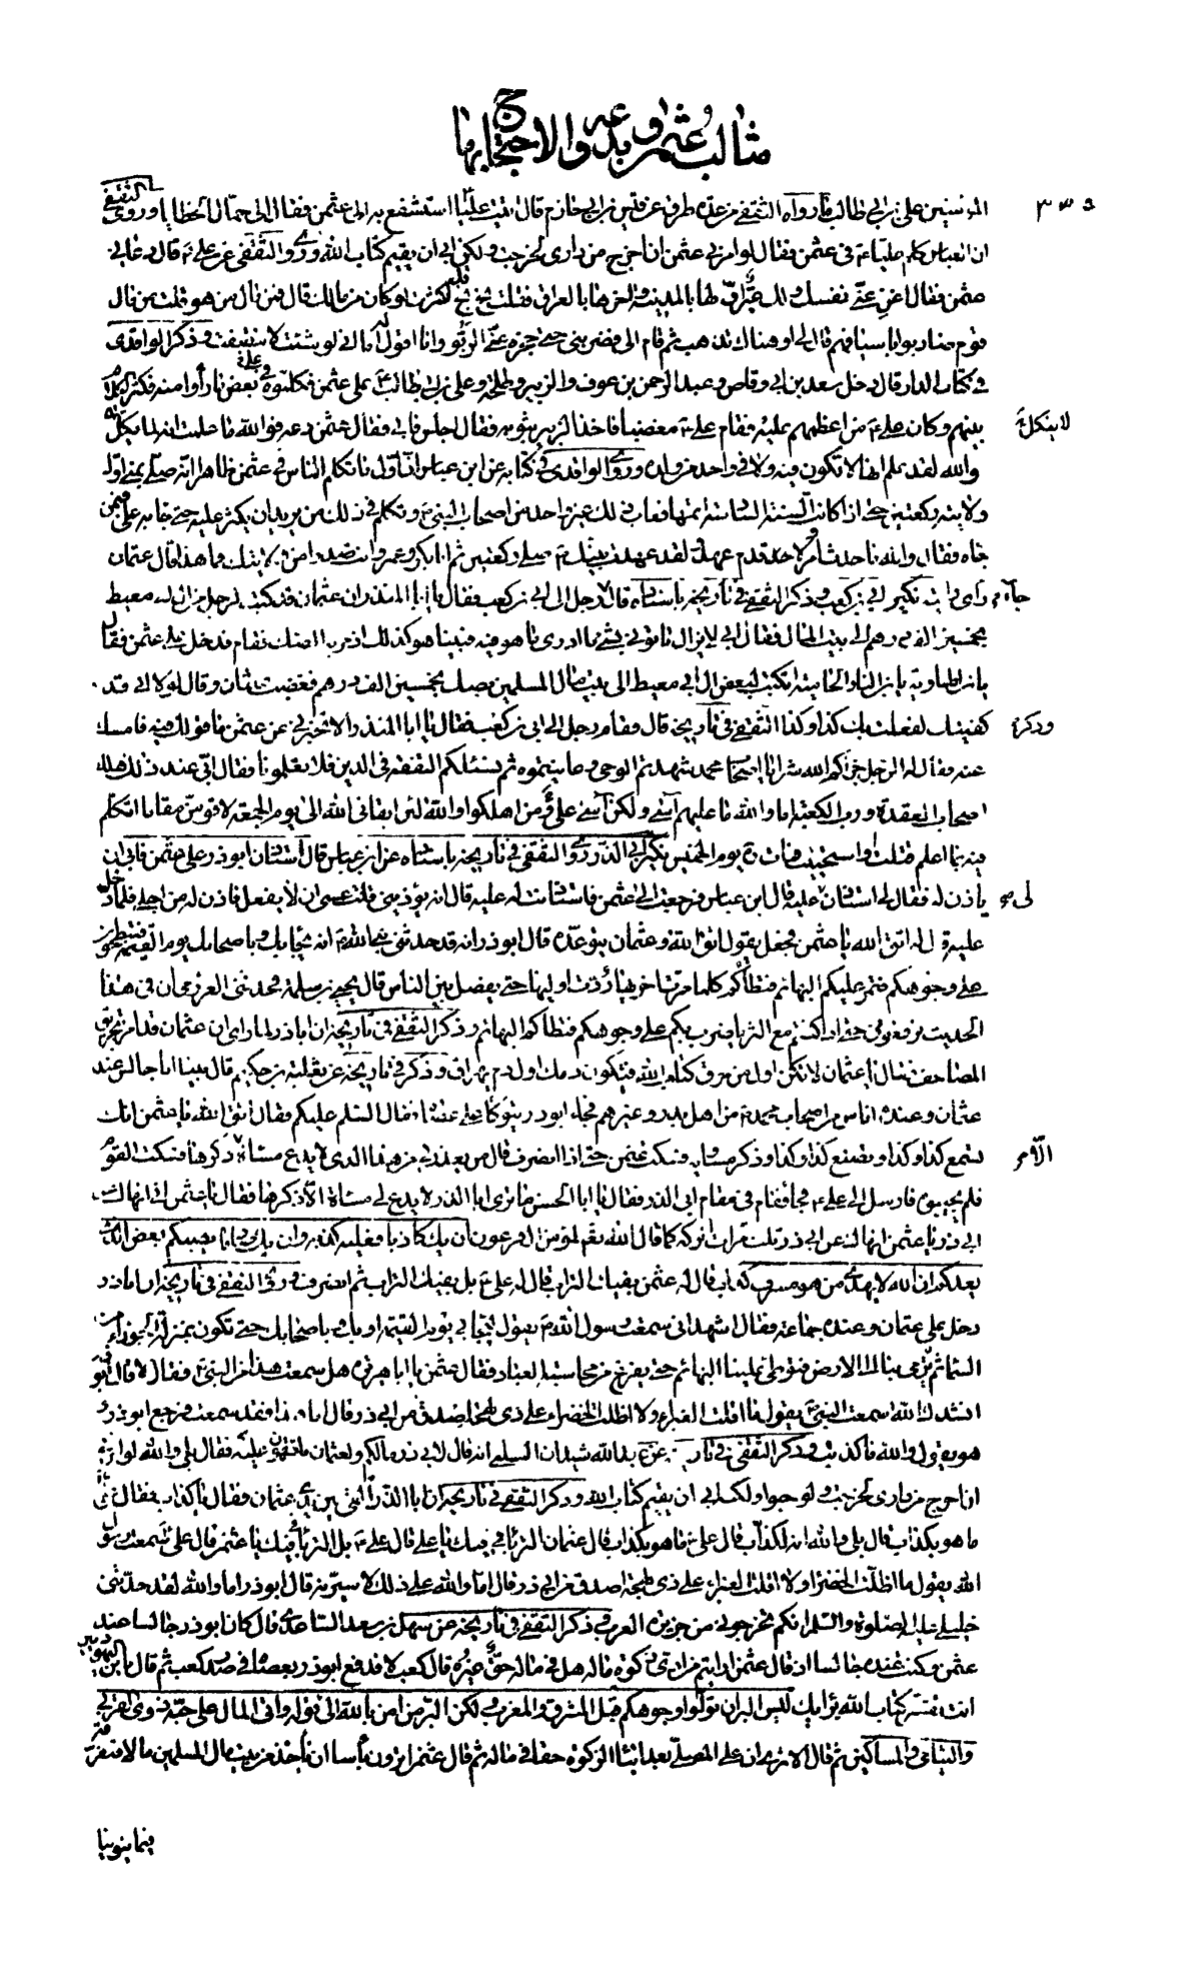 مثالب عثمن وبدعه والاحتجاج بها
٣٣٥
المؤمنين علي بن ابي طالب ع ما رواه الثقفي من عدة طرق عن قيس بن ابي حازم قال اتيت عليا استشفع به الى عثمن فقال الى حمال الخطايا وروى الثقفي
ان العباس كلم عليا ع في عثمن فقال لو امرني عثمن ان اخرج من داري لخرجت ولكن ابى ان يقيم كتاب الله وروى الثقفي عن علي ع قال دعاني
عثمن فقال اغن عني نفسك ولك عير اولها بالمدينة واخرها بالعراق فقلت بخ بخ قد اكثرت لو كان من مالك قال فمن مال من هو قلت من مال
قوم ضاربوا باسيافهم قال لي اوهناك تذهب ثم قام الي فضربني حتى حجزه عني الربو وانا اقول له اما اني لو شئت لانتصفت وذكر الواقدي
في كتاب الدار قال دخل سعد بن ابي وقاص وعبد الرحمن بن عوف والزبير وطلحة وعلي بن ابي طالب ع على عثمن فكلموه في بعض ما راوا منه فكثر الكلام
بينهم وكان علي ع من اعظمهم عليه فقام علي ع مغضبا فاخذ الزبير بثوبه فقال اجلس فابى فقال عثمن دعه فوالله ما علمت انه لما يكل
لا ينكل
والله لقد علم انها لا تكون فيه ولا في واحد من ولده وروى الواقدي في كتابه عن ابن عباس ان اول ما تكلم الناس في عثمن ظاهرا انه صلى بمنى اول
ولايته ركعتين حتى اذا كانت السنة السادسة اتمها فعاب ذلك غير واحد من اصحاب النبي ص وتكلم في ذلك من يريد ان يكثر عليه حتى جاءه علي ع فيمن
جاءه فقال والله ما حدث امر ولا قدم عهد ولقد عهدت نبيك ص صلى ركعتين ثم ابا بكر وعمر وانت صدرا من ولايتك فما هذا قال عثمان
راي رايته نكير ابي بن كعب وذكر الثقفي في تاريخه باسناده قال جاء رجل الى ابي بن كعب فقال يا ابا المنذر ان عثمان قد كتب لرجل من ال ابي معيط
جاء
بخمسين الف درهم الى بيت المال فقال ابي لا يزال تاتوني بشيء ما ادري ما هو فيه فبينا هو كذلك اذ مر به الصك فقام فدخل على عثمن فقال
يا بن الهاوية يا بن النار الحامية اتكتب لبعض ال ابي معيط الى بيت مال المسلمين بصك بخمسين الف درهم فغضب عثمان وقال لولا اني قد
كفيتك لفعلت بك كذا وكذا الثقفي في تاريخه قال وقام رجل الى ابي بن كعب فقال يا ابا المنذر الا تخبرني عن عثمن ما قولك فيه فامسك
وذكر
عنه فقال له الرجل جزاكم الله شرا يا اصحاب محمد شهدتم الوحي وعاينتموه ثم نسئلكم التفقه في الدين فلا تعلمونا فقال ابي عند ذلك هلك
اصحاب العقدة ورب الكعبة اما والله ما عليهم آسى ولكن آسى على من اهلكوا والله لئن ابقاني الله الى يوم الجمعة لاقومن مقاما اتكلم
فيه بما اعلم قتلت او استحييت فمات ره يوم الخميس نكير ابي الذر روى الثقفي في تاريخه باسناده عن ابن عباس قال استاذن ابوذر على عثمن فابى ان
ياذن له فقال لي استاذن عليه قال ابن عباس فرجعت الى عثمن فاستاذنت له عليه قال انه يؤذيني قلت عسى ان لا يفعل فاذن له من اجلي فلما دخل
لي
عليه قال له اتق الله يا عثمن فجعل يقول اتق الله وعثمان يتوعده قال ابوذر انه قد حدثني نبي الله ص انه يجاء بك وباصحابك يوم القيمة فتبطحون
على وجوهكم فتمر عليكم البهائم فتطأكم كلما مرت اخريها ردت اوليها حتى يفصل بين الناس قال يحيى بن سلمة فحدثني العرزمي ان في هذا
الحديث ترفعوني حتى اذا كنتم مع الثريا ضرب بكم على وجوهكم فتطأكم البهائم وذكر الثقفي في تاريخه ان اباذر لما راى ان عثمان قد امر بتحريق
المصاحف فقال يا عثمان لا تكن اول من حرق كتاب الله فيكون دمك اول دم يهراق وذكر في تاريخه عن ثعلبة بن حكيم قال بينا انا جالس عند
عثمان وعنده اناس من اصحاب محمد ص من اهل بدر وغيرهم فجاء ابوذر يتوكأ على عصاه فقال السلم عليكم فقال اتق الله يا عثمن انك
تسمع كذا وكذا وتصنع كذا وكذا وذكر مساويه فسكت عثمن حتى اذا انصرف قال من يعذرني من هذا الذي لا يدع مساءة الا ذكرها فسكت القوم
الا
فلم يجيبوه فارسل الى علي ع فجاء فقام في مقام ابي الذر فقال يا ابا الحسن ما ترى ابا الذر لا يدع لي مساءة الا ذكرها فقال يا عثمن اني انهاك عن
ابي ذر يا عثمن انهاك عن ابي ذر ثلث مرات اتركه كما قال الله تعم لمؤمن آل فرعون ان يك كاذبا فعليه كذبه وان يك صادقا يصبكم بعض الذي
يعدكم ان الله لا يهدي من هو مسرف كذاب قال له عثمن بفيك التراب قال له علي ع بل بفيك التراب ثم انصرف وروى الثقفي في تاريخه ان اباذر
دخل على عثمان وعنده جماعة فقال اشهد اني سمعت رسول الله ص يقول ليجاء بي يوم القيمة او بك وباصحابك حتى تكون بمنزلة الجوزاء من
السماء ثم يرمى بنا الى الارض فتوطى علينا البهائم حتى يفرغ من محاسبة العباد فقال عثمن يا ابا هريرة هل سمعت هذا من النبي ص فقال لا قال ابوذر
انشدك الله سمعت النبي ص يقول ما اقلت الغبراء ولا اظلت الخضراء على ذي لهجة اصدق من ابي ذر قال اما هذا فقد سمعت فرجع ابوذر و
هو يقول والله ما كذبت وذكر الثقفي في تاريخه عن عبد الله شيدان السلمي انه قال لابي ذر ما لكم ولعثمان ما تهون عليه فقال بلى والله لو امرني
ان اخرج من داري لخرجت ولو حبوا ولكنه ابى ان يقيم كتاب الله وذكر الثقفي في تاريخه ان ابا الذر القي بين يدي عثمان فقال يا كذاب فقال علي
ما هو بكذاب قال بلى والله انه لكذاب قال علي ع ما هو بكذاب قال عثمان التراب في فيك يا علي قال علي ع بل التراب في فيك يا عثمن قال علي ع سمعت رسول
الله يقول ما اظلت الخضراء ولا اقلت الغبراء على ذي لهجة اصدق من ابي ذر قال اما والله على ذلك لاسيرنه قال ابوذر اما والله لقد حدثني
خليلي عليه الصلوة والسلم انكم تخرجوني من جزيرة العرب وذكر الثقفي في تاريخه عن سهل بن سعد الساعدي قال كان ابوذر جالسا عند
عثمن وكنت عنده جالسا اذ قال عثمن ارايتم من ادى زكوة ماله هل في ماله حق غيره قال كعب لا فدفع ابوذر بعصاه في صدر كعب ثم قال يا بن اليهوديين
انت تفسر كتاب الله برايك ليس البر ان تولوا وجوهكم قبل المشرق والمغرب ولكن البر من امن بالله الى قوله واتى المال على حبه ذوي القربى
واليتامى والمساكين ثم قال الا ترى ان على المصلي بعد ايتاء الزكوة حقا في ماله ثم قال عثمن اترون بأسا ان نأخذ من بيت مال المسلمين مالا فنفرقه
فيما ينوبنا